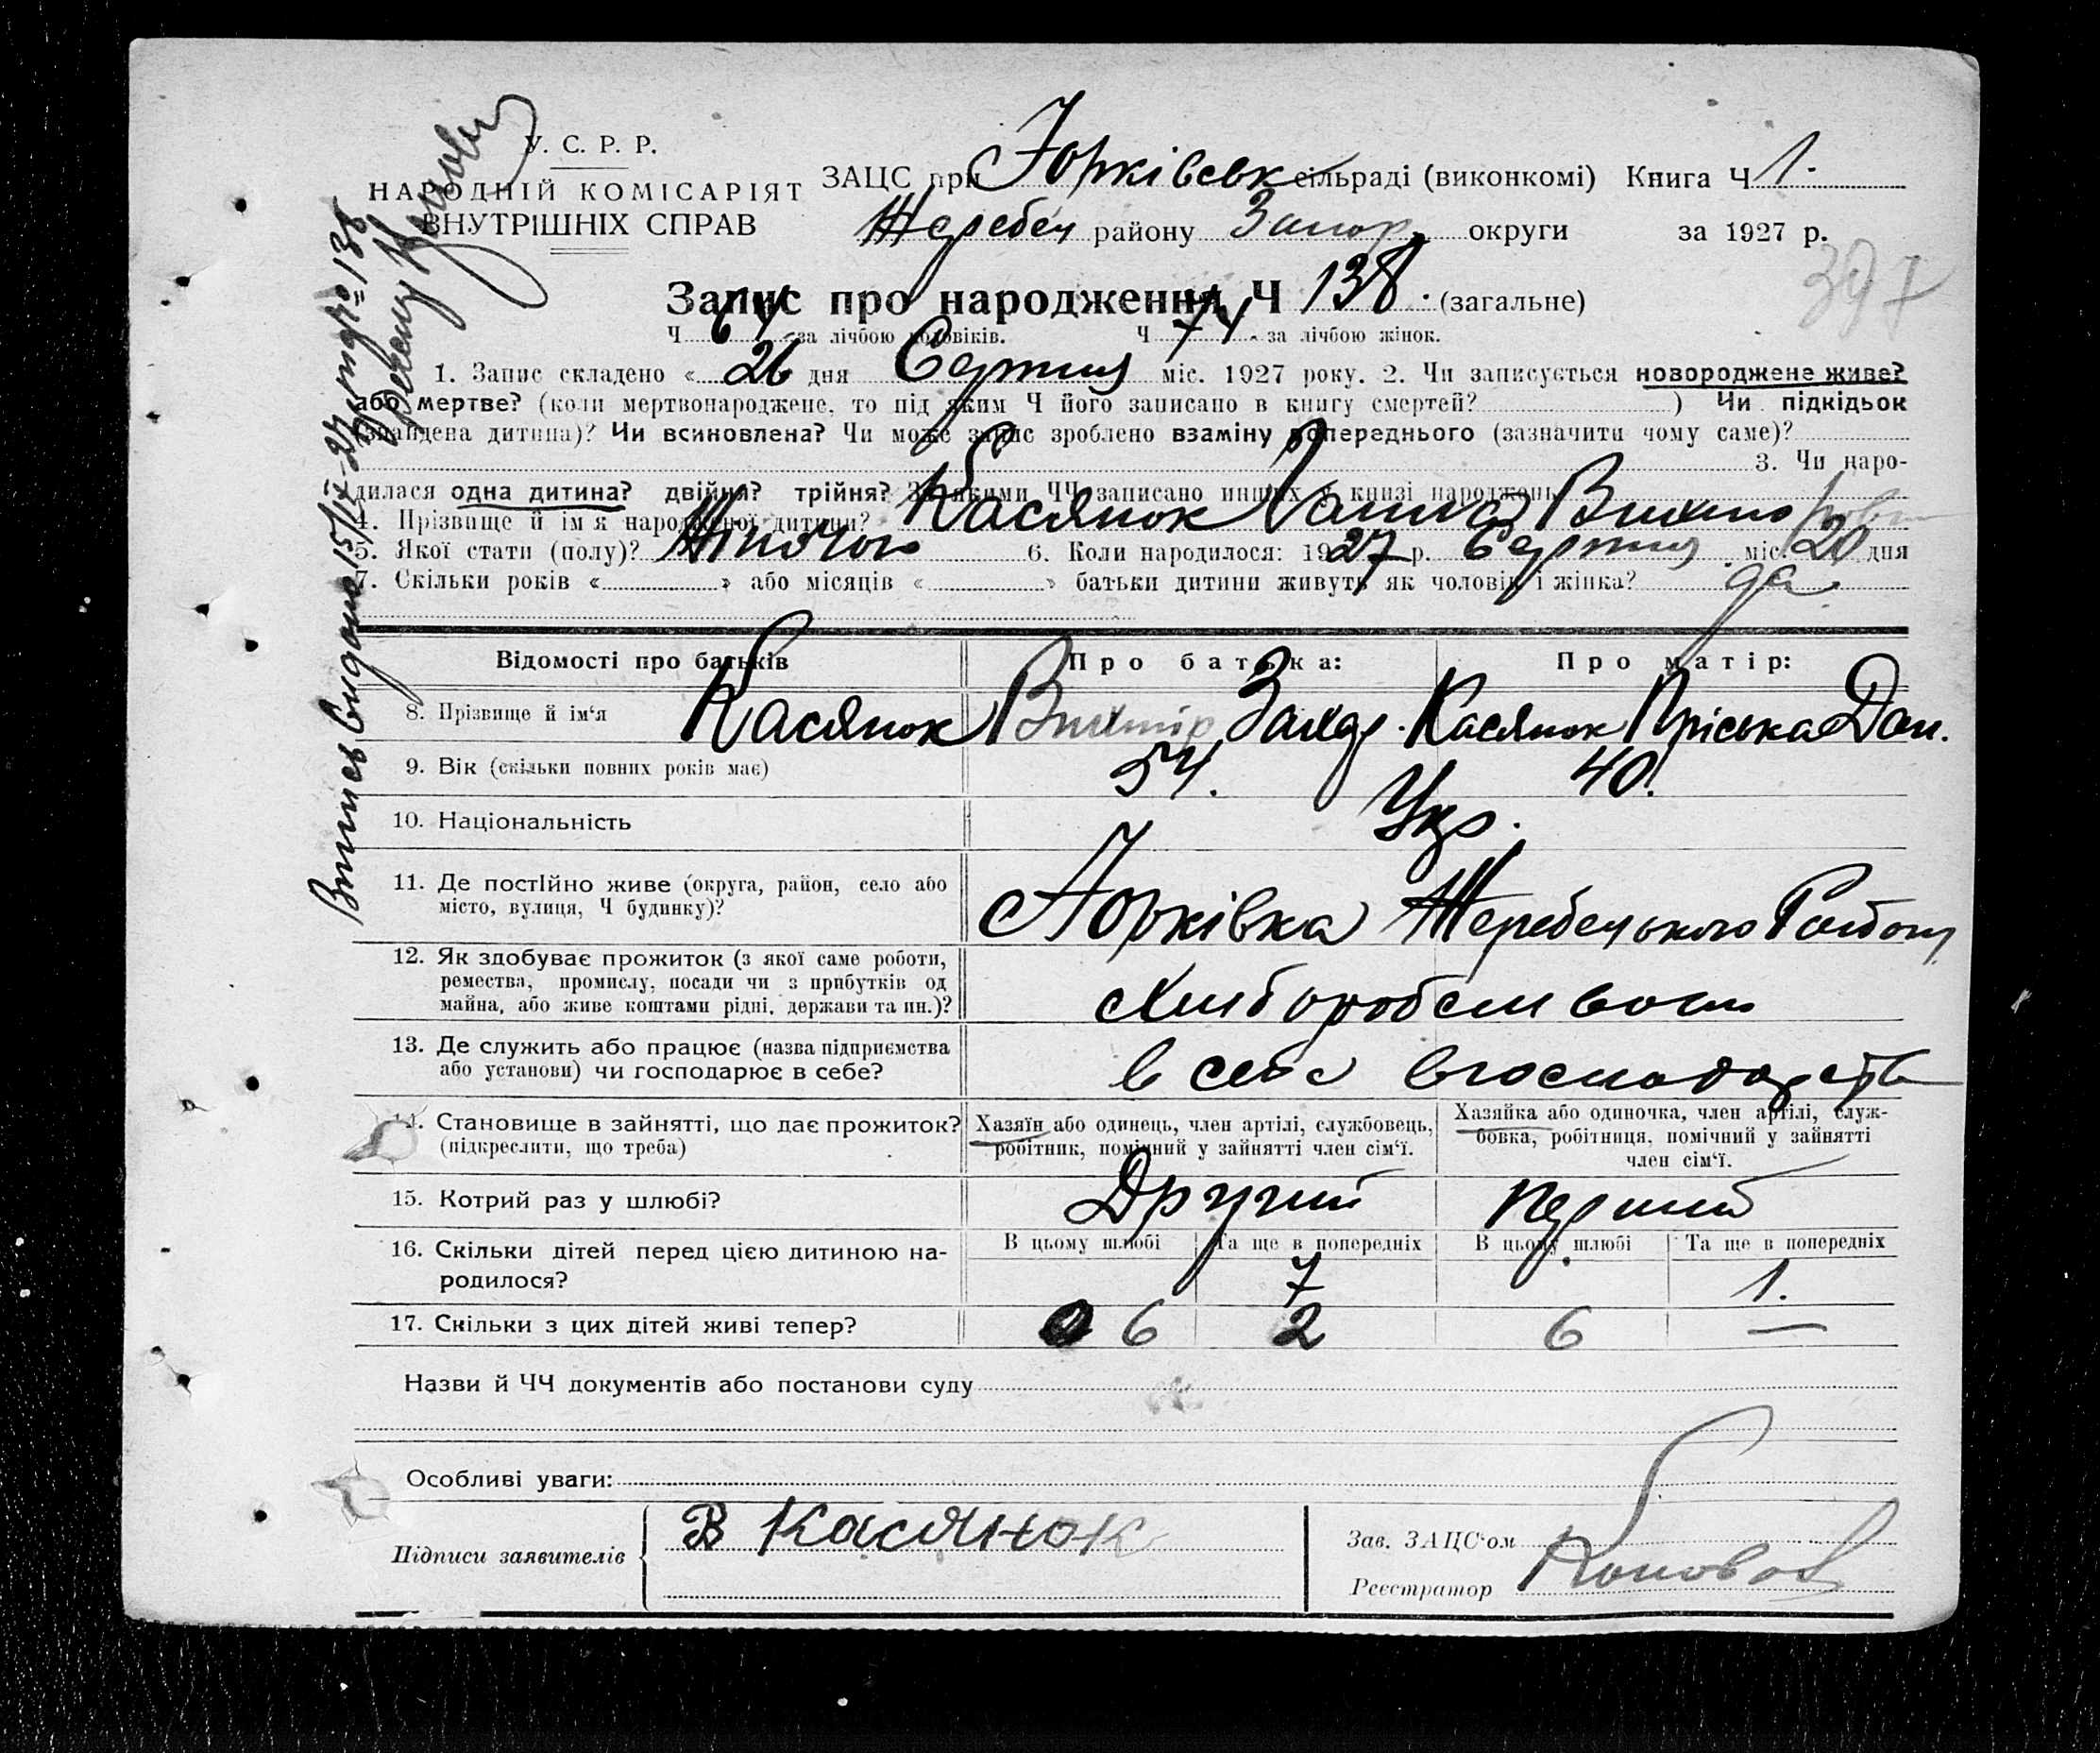 У. С. Р. Р.
НАРОДНІЙ КОМІСАРІЯТ
ВНУТРІШНІХ СПРАВ
ЗАЦС при Юрківськ сільраді (виконкомі) Книга Ч 1.
Жеребеч району Запор. округи за 1927 р.
397
Запис про народження Ч 138. (загальне)
Ч 64 за лічбою чоловіків. Ч 74 за лічбою жінок.
1. Запис складено « 26 дня Серпня міс. 1927 року. 2. Чи записується новороджене живе?
або мертве? (коли мертвонароджене, то під яким Ч його записано в книгу смертей? ) Чи підкідьок
(знайдена дитина)? Чи всиновлена? Чи може запис зроблено взаміну попереднього (зазначити чому саме)?
3. Чи наро-
дилася одна дитина? двійня? трійня? За якими ЧЧ записано инших у книзі народжень
4. Прізвище й ім'я народженої дитини? Касянюк Ганна
5. Якої стати (полу)? Жіночої 6. Коли народилося: 1927 р. Серпня міс. 20 дня
7. Скільки років « » або місяців « » батьки дитини живуть як чоловік і жінка? да
Відомості про батьків Про батька: Про матір:
8. Прізвище й ім'я Касянюк Вихтір Захар. Касянюк Пріська Дан.
9. Вік (скільки повних років має) 54. 40.
10. Національність Укр.
11. Де постійно живе (округа, район, село або
місто, вулиця, Ч будинку)? Юрківка Жеребецького Району
12. Як здобуває прожиток (з якої саме роботи,
ремества, промислу, посади чи з прибутків од
майна, або живе коштами рідні, держави та ин.)? Хліборобством
13. Де служить або працює (назва підприємства
або установи) чи господарює в себе? в себе в господарстві
14. Становище в зайнятті, що дає прожиток?
(підкреслити, що треба)
Хазяїн або одинець, член артілі, службовець,
робітник, помічний у зайнятті член сім'ї.
Хазяйка або одиночка, член артілі, служ-
бовка, робітниця, помічний у зайнятті
член сім'ї.
15. Котрий раз у шлюбі? Другий перший
16. Скільки дітей перед цією дитиною на-
родилося?
В цьому шлюбі Та ще в попередніх В цьому шлюбі Та ще в попередніх
7 1.
17. Скільки з цих дітей живі тепер? 6 2 6 —
Назви й ЧЧ документів або постанови суду
Особливі уваги:
Підписи заявителів В Касянюк
Зав. ЗАЦС'ом
Реєстратор
Выпись выдано 15/IX-27